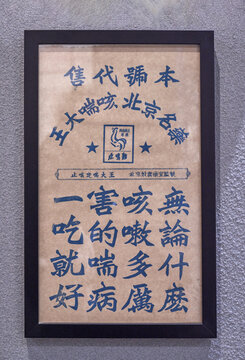 本號代售
北京名藥 咳喘大王
止咳定喘大王
無論什麼
咳嗽多厲
害的喘病
一吃就好